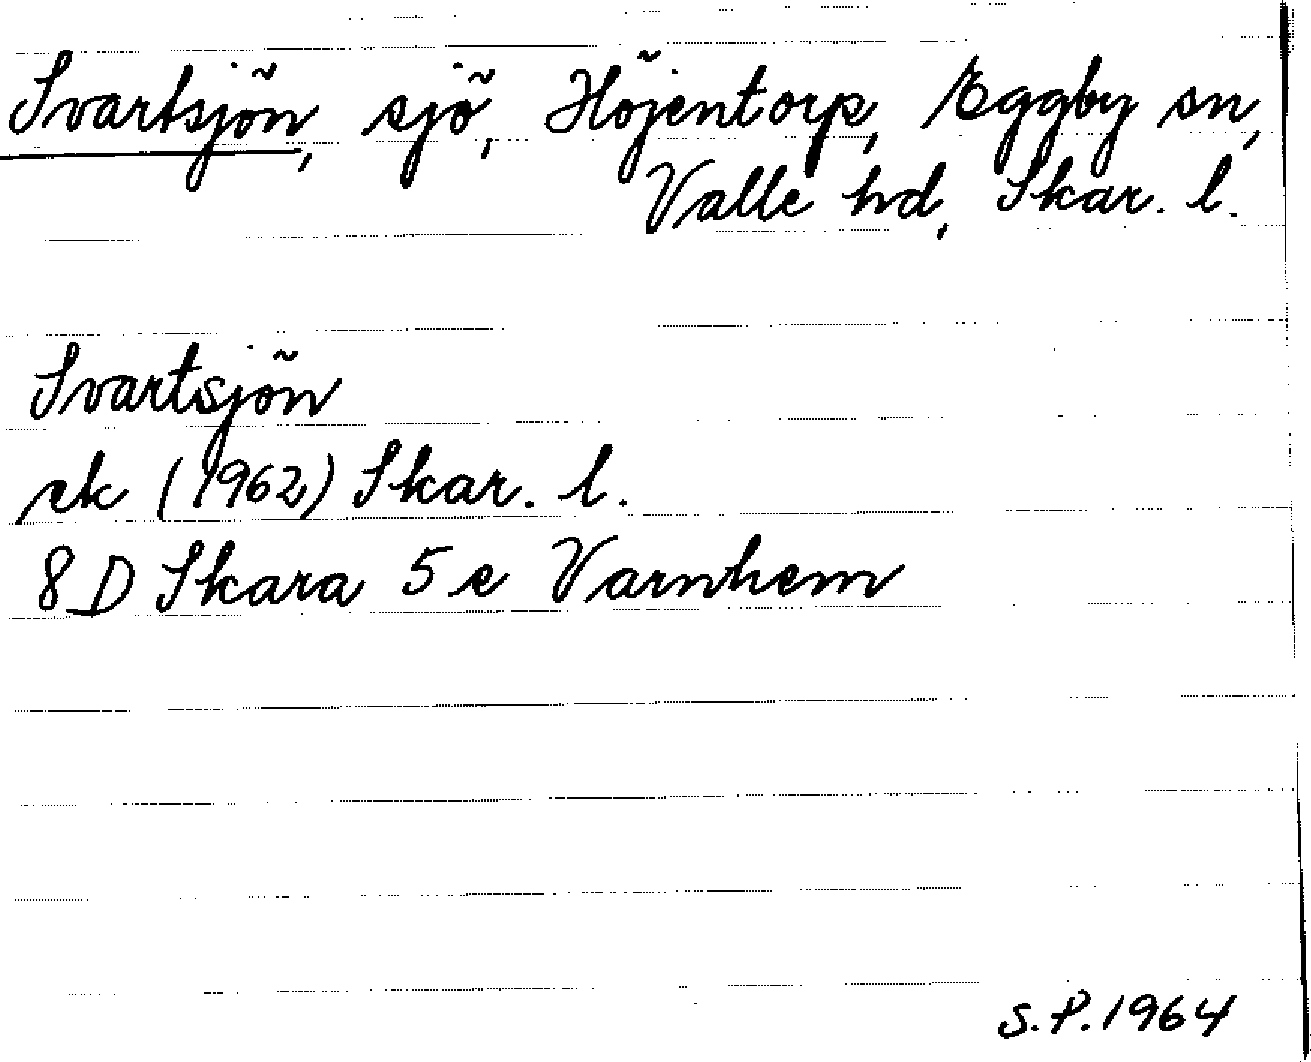 Svartsjön, sjö, Höjentorp, Eggby sn,
Valle hd, Skar. l.
Svartsjön
ek (1962) Skar. l.
8 D Skara 5 e Varnhem
S.P. 1964